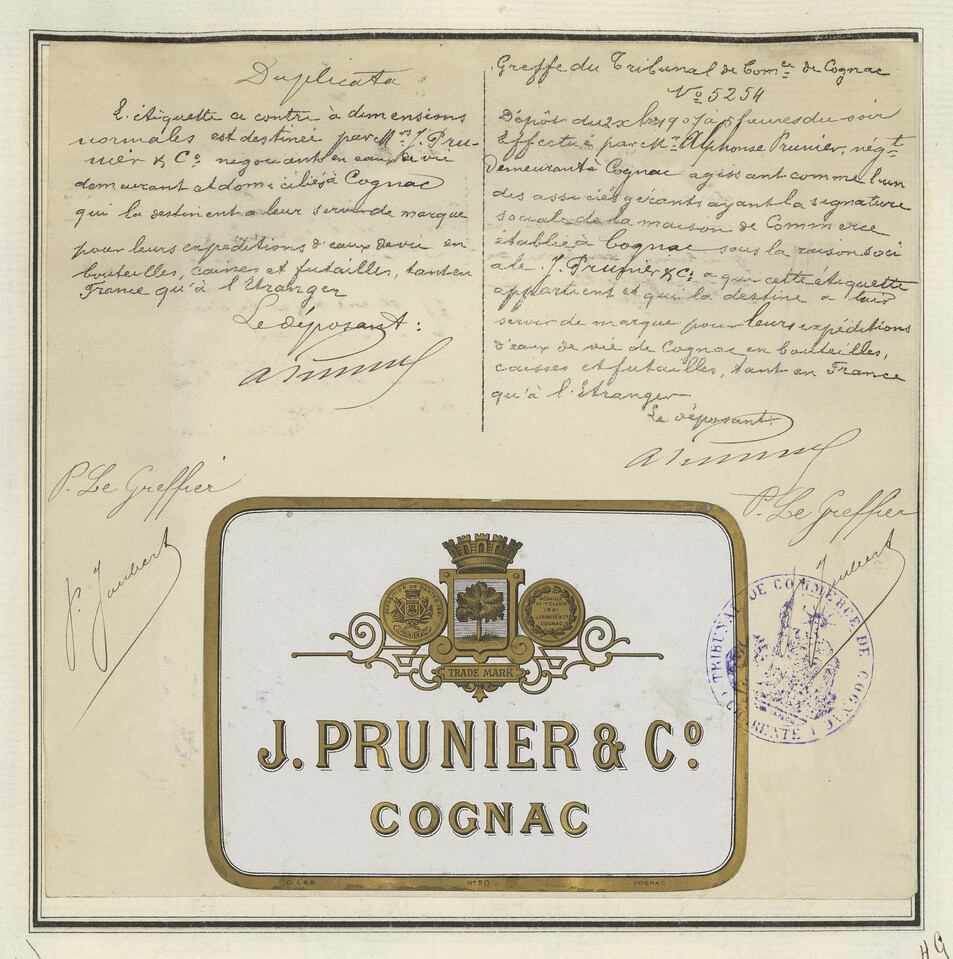 Duplicata
L'étiquette ci contre à dimensions
normales est destinée par M.rs J. Pru-
nier & Co. négociants en eaux de vie
demeurant et domiciliés à Cognac
qui la destinent a leur servir de marque
pour leurs expéditions d'eaux de vie en
bouteilles, caisses et futailles, tant en
France qu'à l'Etranger
Le déposant:
A Prunier
P. Le Greffier
Greffe du Tribunal de Comce de Cognac
No 5254
Dépôt du 2 à 5 heures du soir
Effectué par Mr Alphonse Prunier, negt
demeurant à Cognac agissant comme l'un
des associés gérants ayant la signature
sociale de la maison de Commerce
établie à Cognac sous la raison soci
ale J. Prunier & Co. a qui cette étiquette
appartient et qui la destine a leur
servir de marque pour leurs expéditions
d'eaux de vie de Cognac en bouteilles,
caisses et futailles, tant en France
qu'à l'Etranger
Le déposant
A Prunier
P. Le Greffier
TRIBUNAL DE COMMERCE DE COGNAC
CHARENTE
MEDAILLE
DE 1re CLASSE
J. PRUNIER & Co
COGNAC
TRADE MARK
J. PRUNIER & Co.
COGNAC
No 90
COGNAC
49